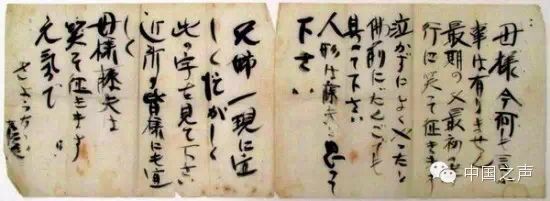 母様今何も言ふ
事は有りません
最期の又最初の孝
行に笑って征きます
泣かずによくやったと
佛前に だんごでも
具へて下さい
人形は藤夫と思って
下さい
兄姉一現に宜
しく忙がしく
此の字を見て下さい
近所の皆様にも宜
しく
母様藤夫は
笑って征きます
元気で
さようなら
中国之声